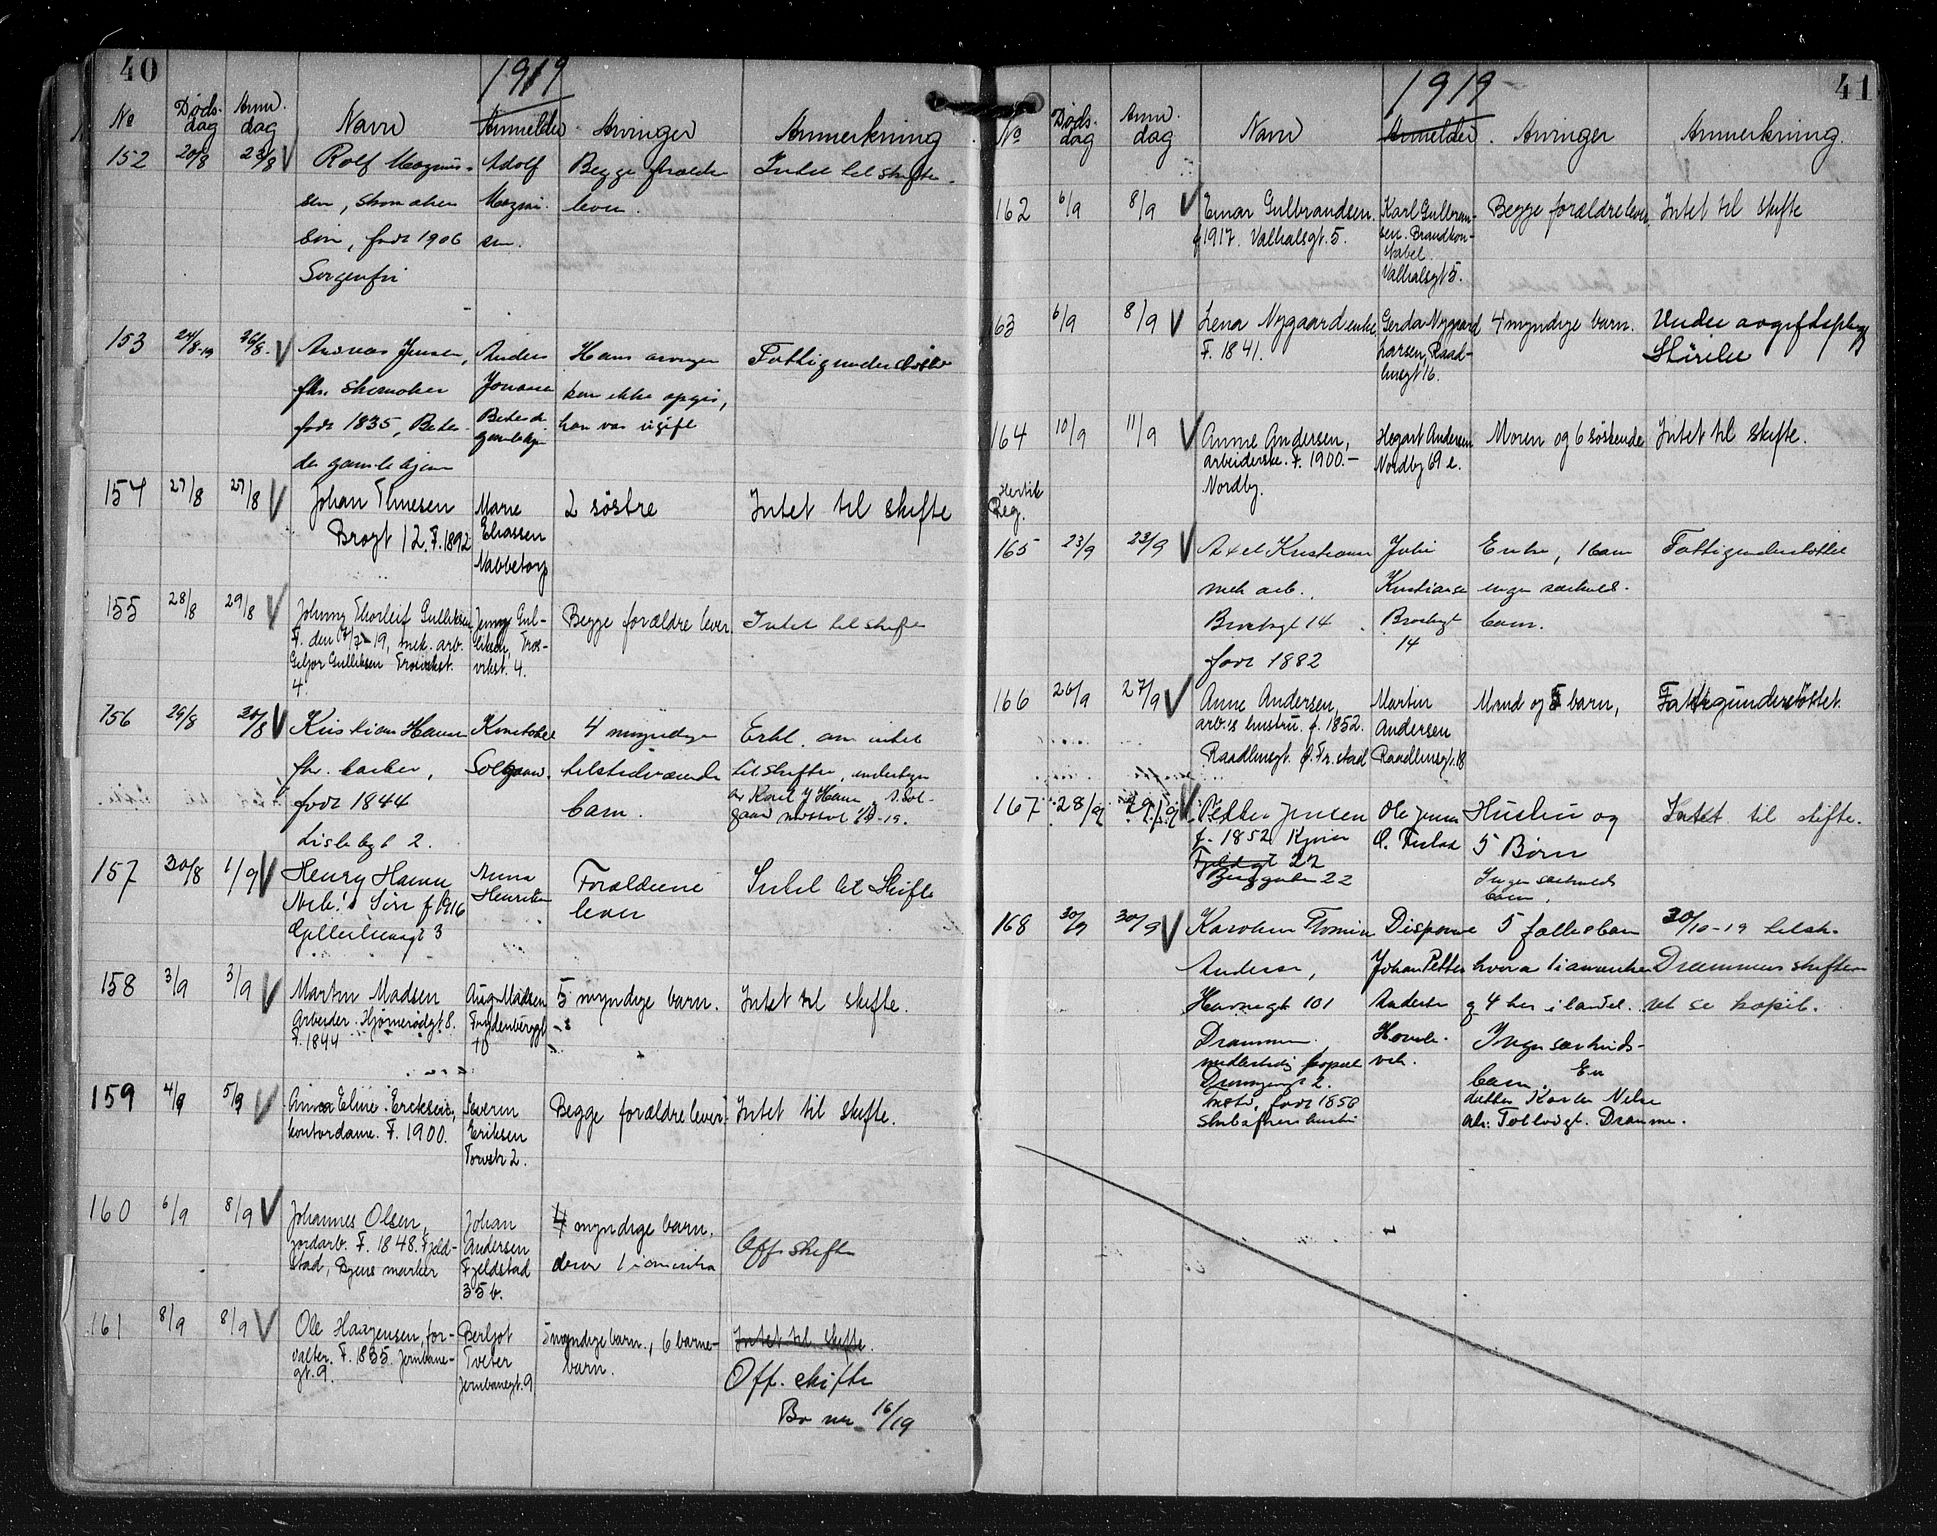 40
1919
No Døds-dag Anm.dag Navn Anmelder Arvinger Anmerkning
152 20/8 23/8 V Rolf Magnus- Adolf Begge forældre Intet til skifte.
sen, skomakers Magnus- lever.
søn, født 1906 sen.
Sorgenfri
153 24/8-19 26/8 V Jensen, Anders Hans arvinger Fattigunderstøttet
fhv. skomaker Jonasen kan ikke opgis,
født 1835, Betes- Betesda han var ugift
da gamlehjem gamlehjem
154 27/8 27/8 V Johan Thuesen Marie 2 søstre Intet til skifte
Brogt 12. F. 1892 Eliassen
Nabbetorp
155 28/8 29/8 V Johnny Thorleif Gulliksen Jenny Gul- Begge forældre lever Intet til skifte
F. den 17/7-19, mek. arb. liksen, Tros-
Gulliksen Trosvikst. vikst. 4.
4.
156 29/8 30/8 V Kristian Hansen Konstabel 4 myndige Erkl. om intet
fhv. barber, Solgaard. tilstedeværende til skifte, undertegn
født 1844 barn. av Karl J Hansen
Lislebygt 2.
157 30/8 1/9 V Henry Hansen Anna Forældrene Intet til Skifte
Arb.s Søn f 1916 Henriksen lever
3
158 3/9 3/9 V Martin Madsen Aug. Madsen 5 myndige barn. Intet til skifte.
Arbeider. Hjørnerødgt 8. Frydenberggt
F. 1844 10
159 4/9 5/9 V Anna Eline Ericksen, Severin Begge forældre lever. Intet til skifte.
kontordame. F. 1900. Eriksen
Torvstr 2.
160 6/9 8/9 V Johannes Olsen, Johan 4 myndige barn.
jordarb. F. 1848. Fjeld- Andersen derav 1 i amerika Off. skifte
stad, Byens marker Fjeldstad
35 b.
161 8/9 8/9 V Ole Haagensen, for- Berljot 5 myndige barn., 6 barne- Intet til skifte.
valter. F. 1835. Jernbane- Tveter barn. Off. skifte
gt. 9. Jernbanegt. 9
Bo nr 16/19
41
1919
No Døds-dag Anm.dag Navn Anmelder Arvinger Anmerkning.
162 6/9 8/9 V Einar Gulbrandsen. Karl Gulbran- Begge forældre lever. Intet til skifte
f 1917. Valhalsgt. 5. sen. Brandkon-
stabel.
Valhalsgt 5.
63 6/9 8/9 V Lena Nygaard enke Gerda Nygaard 4 myndige barn. Under avgiftspligt
F. 1841. Raad- Størrelse
husgt 16.
164 10/9 11/9 V Anne Andersen, Hogart Andersen Moren og 6 søskende Intet til skifte.
arbeiderske. F. 1900.- Nordby 69 e.
Nordby.
Reg.
165 23/9 23/9 V Axel Kristiansen Julie Enke, 1 barn Fattigunderstøttet
mek arb. Kristiansen ingen særkuld-
Brochsgt 14 Brochsgt barn.
født 1882 14
166 26/9 27/9 V Anne Andersen, Martin Mand og 5 barn, Fattigunderstøttet.
arb.s hustru f. 1852. Andersen
Raadhusgt. Ø. Fr.stad Raadhusgt. 18
167 28/9 29/9 V Petter Jensen Ole Jensen Hustru og Intet til skifte.
f. 1852 Ø. Frstad 5 Børn
Fjeldgt 22 Ingen særkulds
22 barn.
168 30/9 30/9 V Karoline Disponent 5 fællesbarn 30/10-19 tilsk.
Andersen, Johan Petter hvorav 1 i amerika Drammens skifter
Havnegt 101 Andersen og 4 her i landet. ret se kopib.
Drammen, Ingen særkulds-
midlertidig barn. En
2. datter Karen
Frstd, født 1858 Tollbodgt. Drammen.
hustru